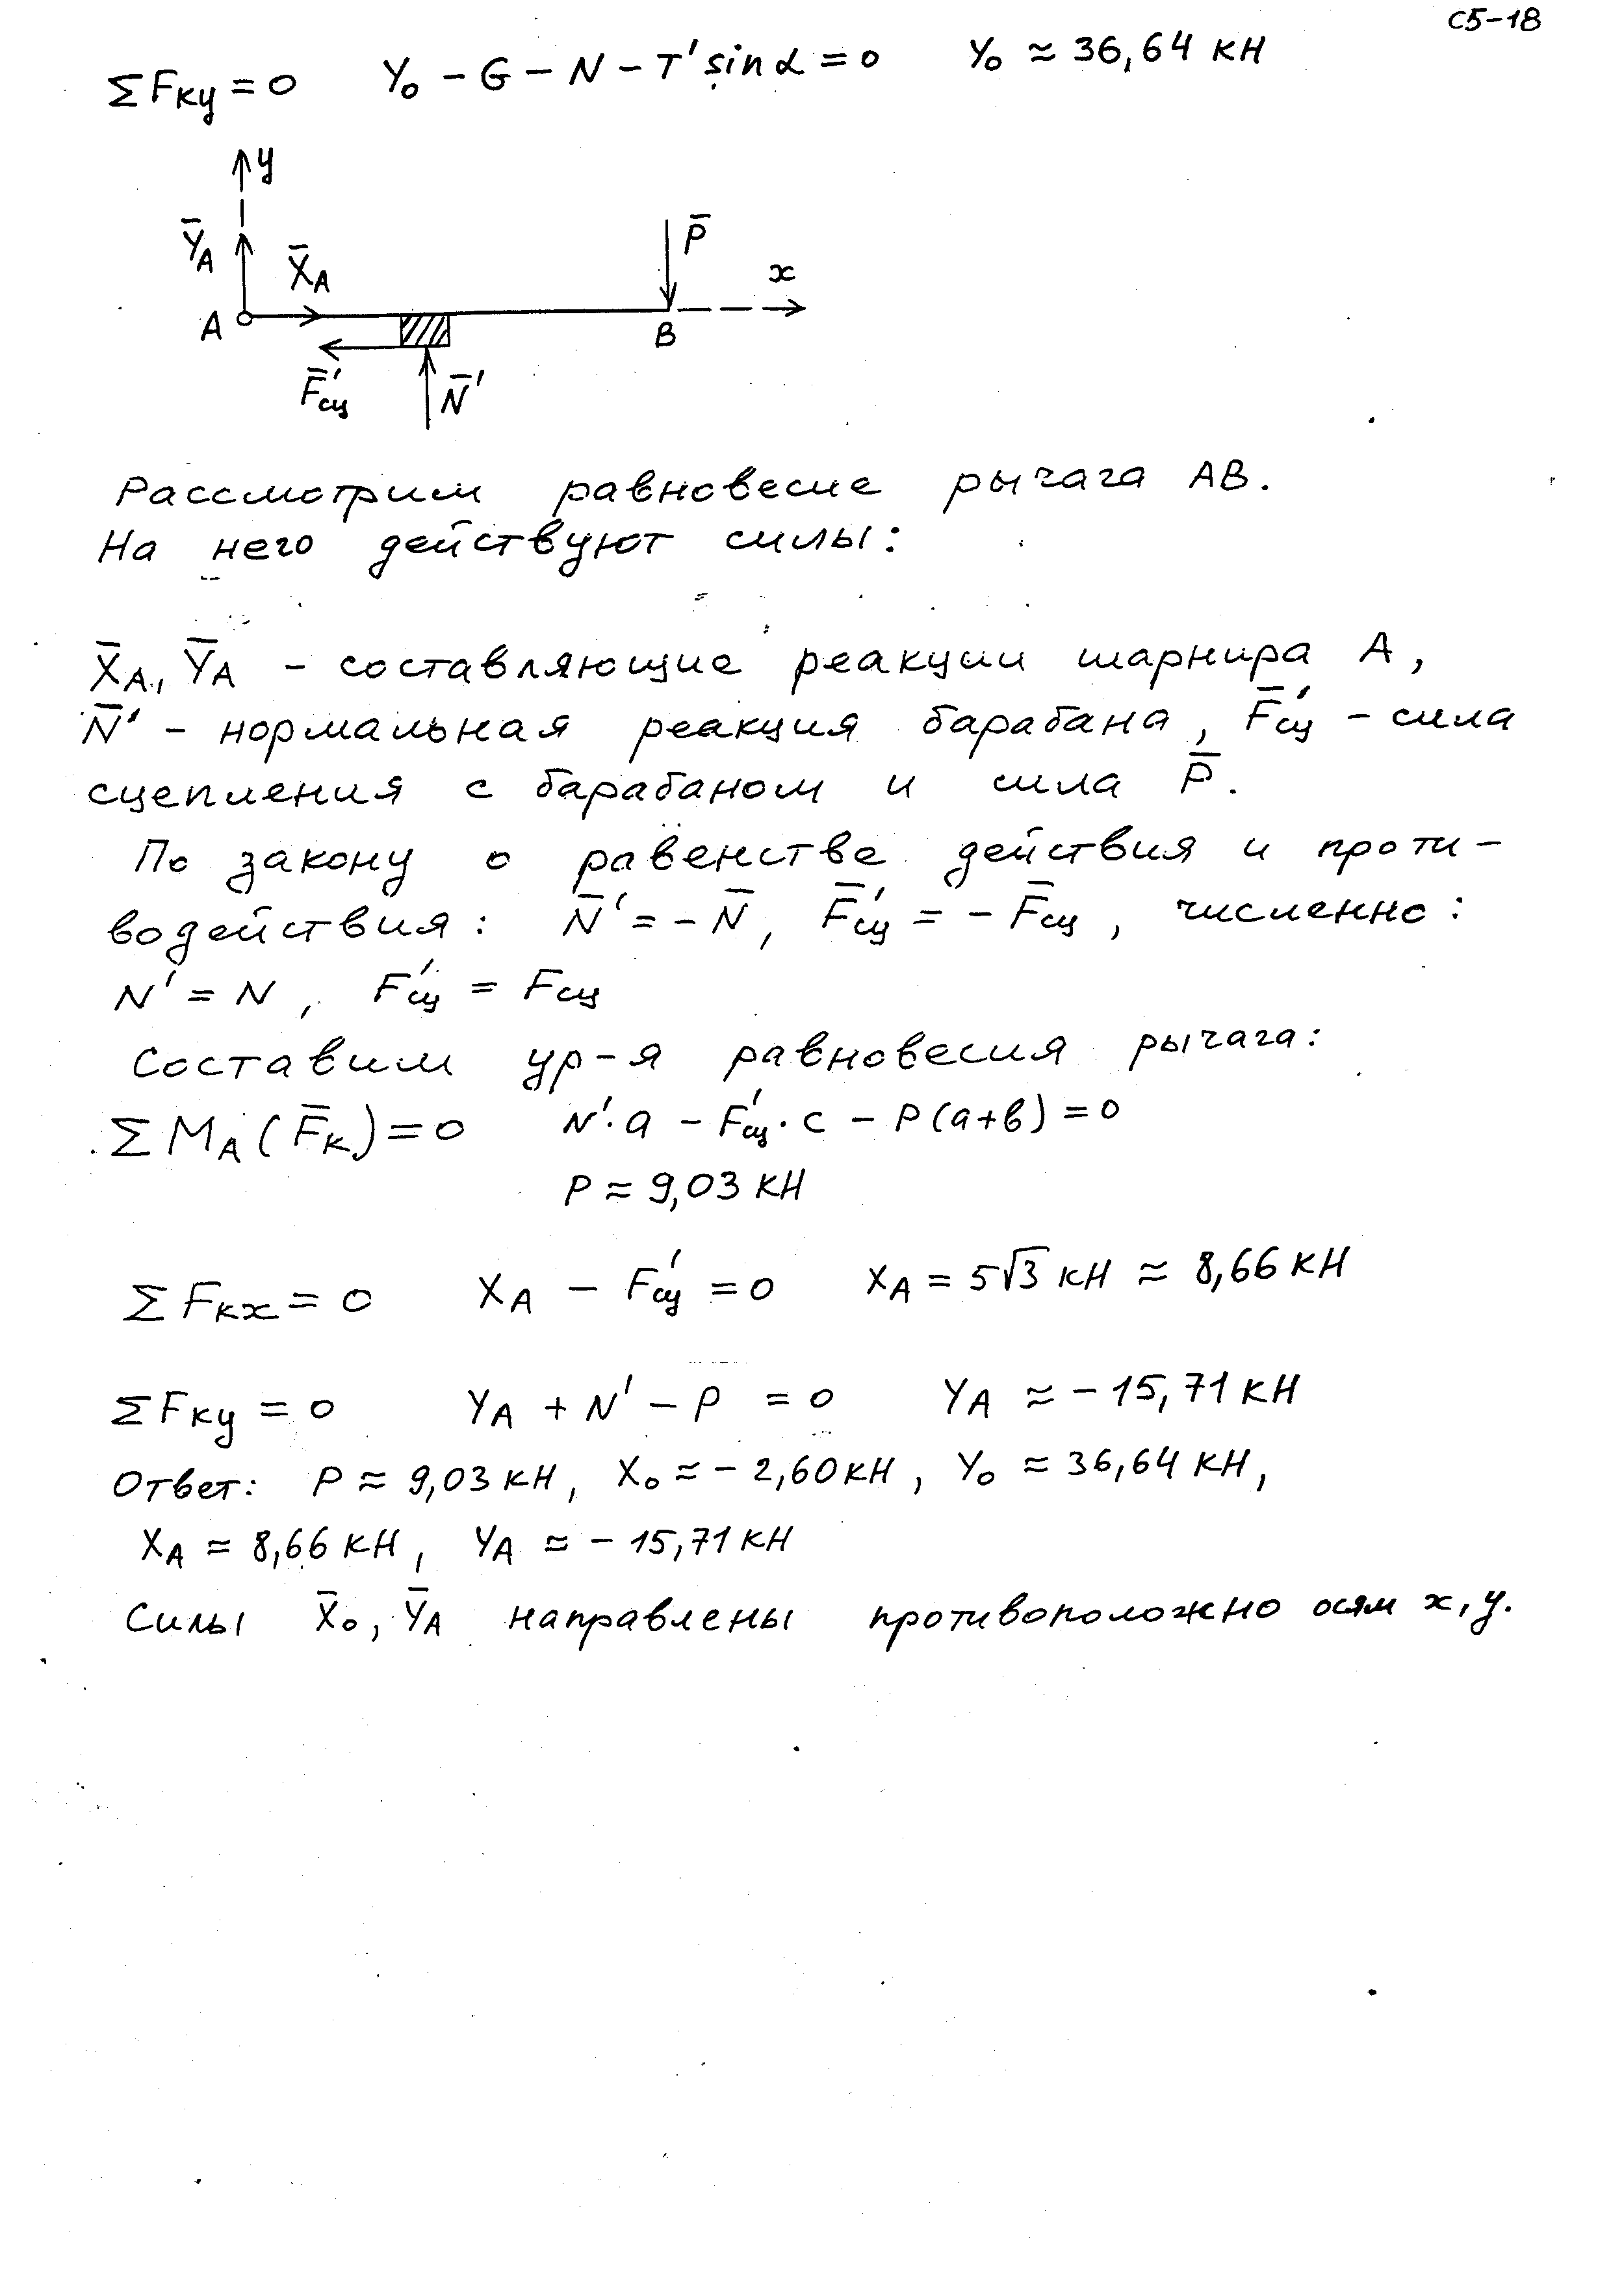 С5-18
ΣFку = 0 Y₀ - G - N - T' sin α = 0 Y₀ ≈ 36,64 кН
y
Y̅_A X̅_A P̅ x
A B
F̅'сц N̅'
Рассмотрим равновесие рычага АВ.
На него действуют силы:
X̅_A, Y̅_A - составляющие реакции шарнира А,
N̅' - нормальная реакция барабана, F̅'сц - сила
сцепления с барабаном и сила P̅.
По закону о равенстве действия и проти-
водействия: N̅' = - N̅, F̅'сц = - F̅сц, численно:
N' = N, F'сц = Fсц
Составим ур-я равновесия рычага:
ΣM_A(F̅к) = 0 N'·a - F'сц·c - P(a+b) = 0
P ≈ 9,03 кН
ΣFкx = 0 X_A - F'сц = 0 X_A = 5√3 кН ≈ 8,66 кН
ΣFку = 0 Y_A + N' - P = 0 Y_A ≈ -15,71 кН
Ответ: P ≈ 9,03 кН, X₀ ≈ - 2,60 кН, Y₀ ≈ 36,64 кН,
X_A ≈ 8,66 кН, Y_A ≈ - 15,71 кН
Силы X̅₀, Y̅_A направлены противоположно осям x, y.